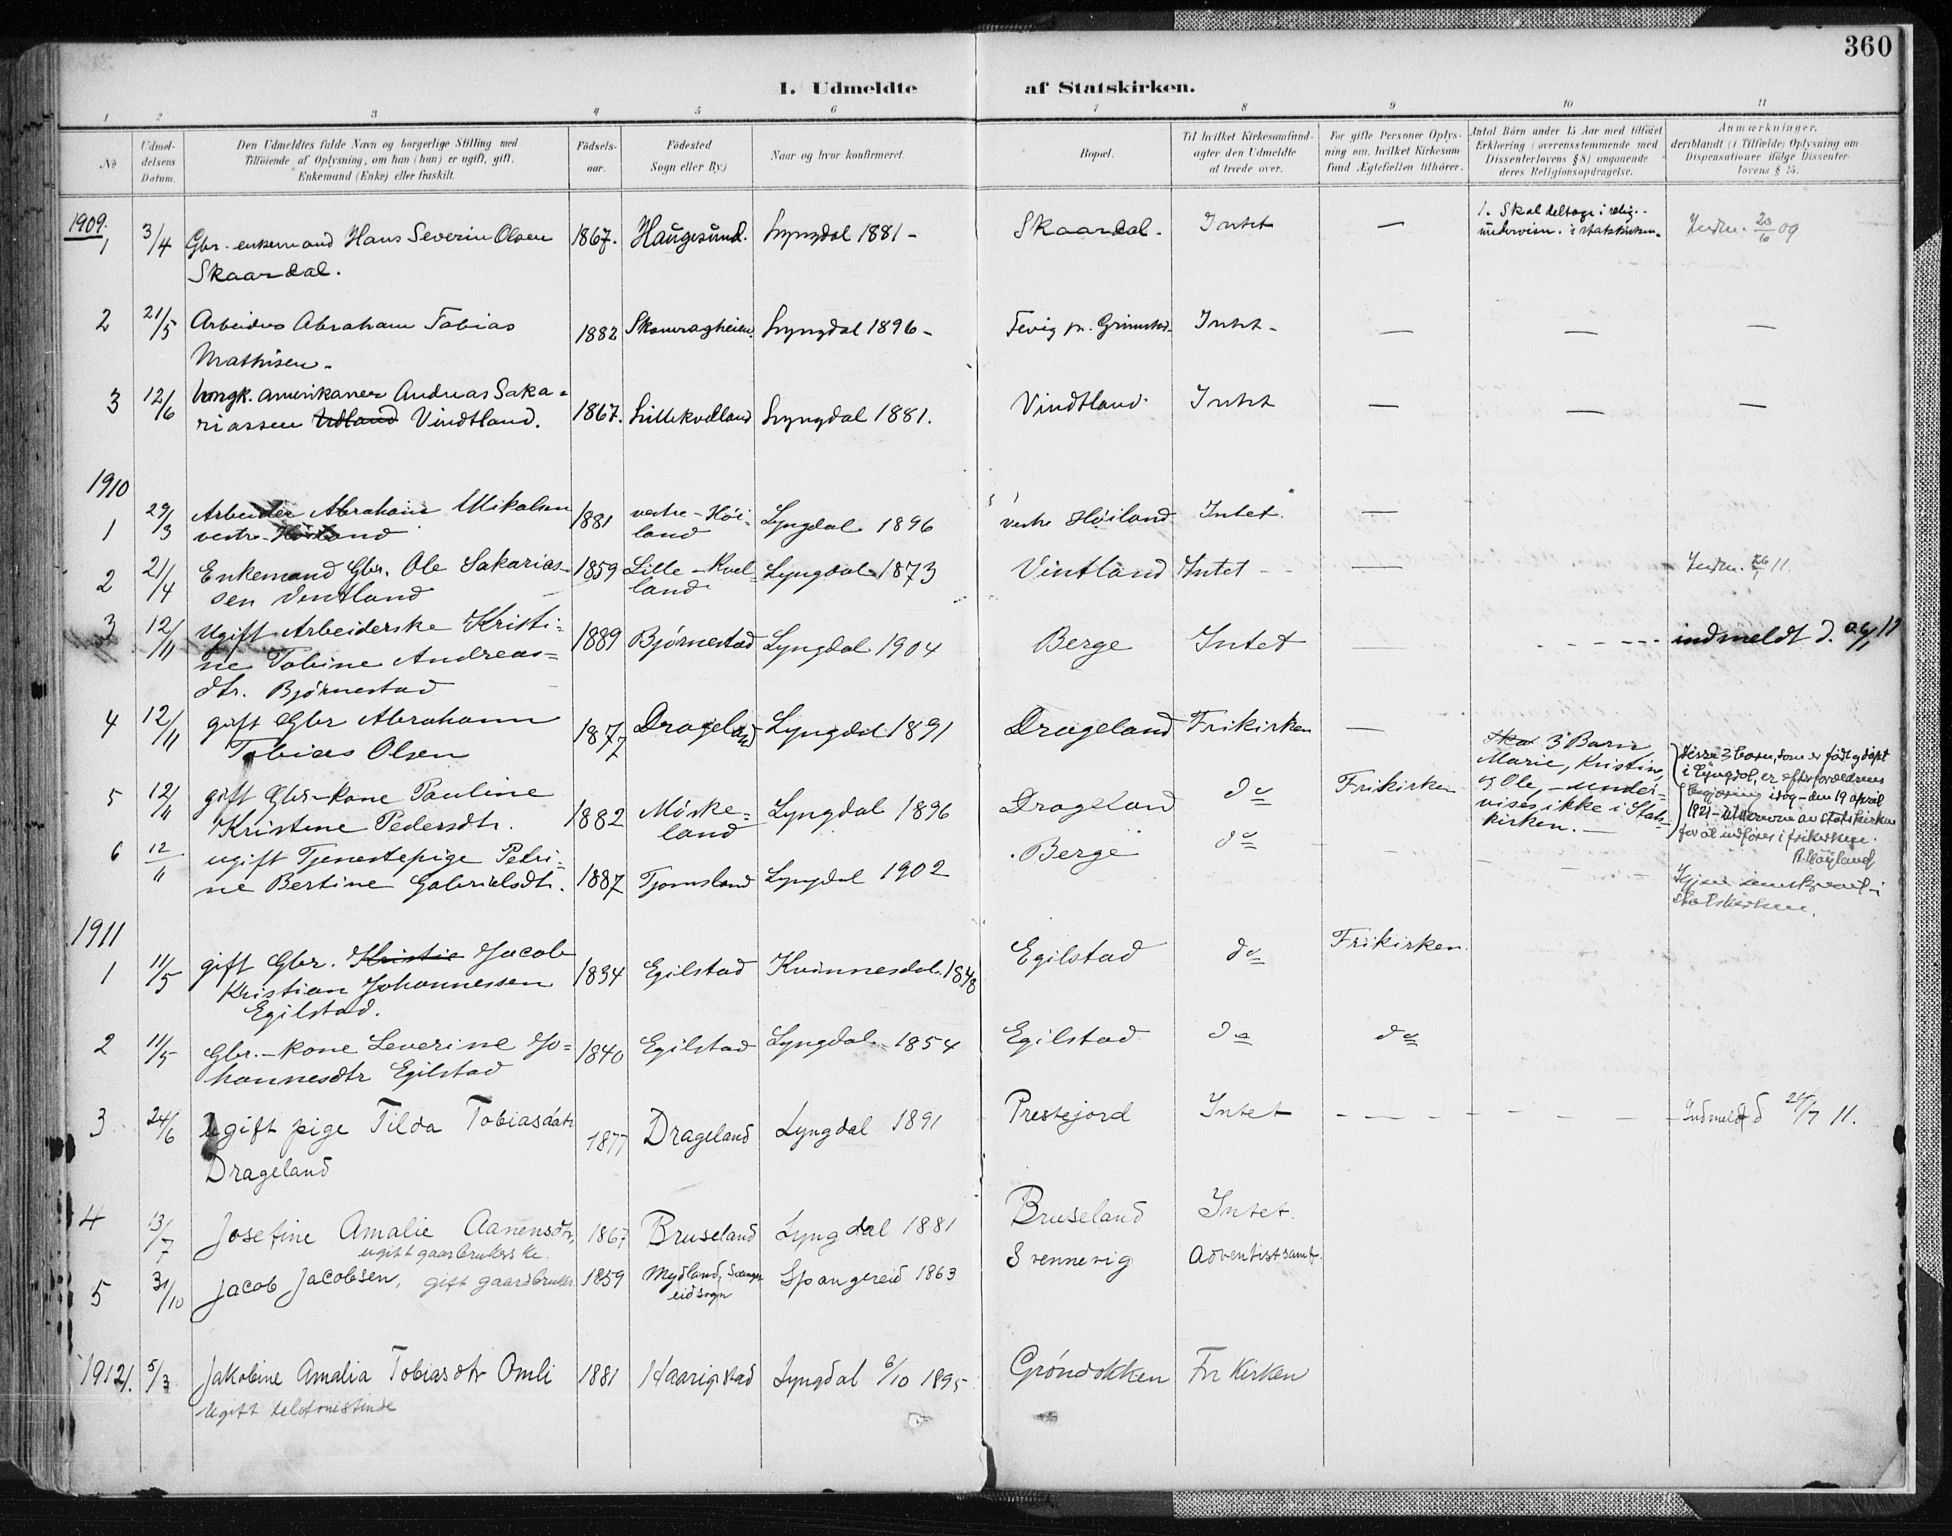 360
I. Udmeldte af Statskirken.
1 2 3 4 5 6 7 8 9 10 11
No
Udmel-
delsens
Datum.
Den Udmeldtes fulde Navn og borgerlige Stilling med
Tilføiende af Oplysning, om han (hun) er ugift, gift,
Enkemand (Enke) eller fraskilt.
Fødsels-
aar.
Fødested
Sogn eller By.)
Naar og hvor konfirmeret.
Bopæl.
Til hvilket Kirkesamfund-
agter den Udmeldte
at træde over.
For gifte Personer Oplys-
ning om, hvilket Kirkesam
fund Ægtefællen tilhører.
Antal Børn under 15 Aar med tilføiet
Erklæring (overensstemmende med
Dissenterlovens § 8) angaaende
deres Religionsopdragelse.
Anmærkninger,
deriblandt (i Tilfælde) Oplysning om
Dispensationer ifølge Dissenter-
lovens § 15.
1909.
1 3/4 Gbr. enkemand Hans Severin Olsen 1867. Haugesund. Lyngdal 1881 - Skaardal. Intet — 1. Skal deltage i relig.- Indm. 20/6 09
Skaardal. undervisn. i statskirken.
2 21/5 Arbeider Abraham Tobias 1882 Lyngdal 1896 - Fevig pr. Grimstad. Intet - — — —
Mathisen.
3 12/6 hmgk. amerikaner Andreas Saka- 1867. Lillekvelland Lyngdal 1881. Vindtland. Intet — — —
riassen Vindtland.
1910
1 29/3 Arbeider Abraham Mikalsen 1881 vestre-Høi- Lyngdal 1896 vestre Høiland Intet. —
vestre Høiland land
2 21/4 Enkemand Gbr. Ole Sakarias- 1859 Lille-Kvel- Lyngdal 1873 Vintland Intet — Indm. 26/1 11.
sen Vintland land
3 12/11 Ugift Arbeiderske Kristi- 1889 Bjørnestad Lyngdal 1904 Berge Intet — indmeldt d.
ne Tobine Andreas-
dtr. Bjørnestad
4 12/11 gift Gbr Abraham 1877 Drageland Lyngdal 1891 Drageland Frikirken —
Tobias Olsen
5 12/11 gift Gbr-kone Pauline 1882 Møske- Lyngdal 1896 Drageland do Frikirken
Kristine Pedersdtr. land
Skal 3 Barn,
Marie, Kristine,
og Ole, - under-
vises ikke i Stats-
kirken. -
Disse 3 barn, som er født og døpt
i Lyngdal, er efter foreldrenes
begjæring idag - den 19 april
1921 - utskrevne av statskirken
for at indføres i frikirken.
R. Høyland
6 12/11 ugift Tjenestepige Petri- 1887 Tjomsland Lyngdal 1902 Berge do
ne Bertine Gabrielsdtr.
Igjen innskrevet i
Statskirken.
1911
1 11/5 gift Gbr. Kristie Jacob 1834 Egilstad Kvinnesdal. 1848 Egilstad do Frikirken.
Kristian Johannessen
Egilstad.
2 11/5 Gbr.-kone Severine Jo- 1840 Egilstad Lyngdal 1854 Egilstad do do
hannesdtr Egilstad
3 24/6 Ugift pige Tilda Tobiasdatr 1877 Drageland Lyngdal 1891 Prestejord Intet - Indmeldt d 24/7 11.
Drageland
4 13/7 Josefine Amalie Aanensdtr, 1867 Bruseland Lyngdal 1881 Bruseland Intet.
ugift gaarbrukerske.
5 31/10 Jacob Jacobsen, gift gaardbruker 1859 Mydland, Spangereid 1863 Svennevig Adventistsamf.
eidsogn
1912 1. 5/3 Jakobine Amalia Tobiasdtr Omli 1881 Haarigstad Lyngdal 6/10 1895 Grøndokken Fri Kirken
Ugift telefonistinde